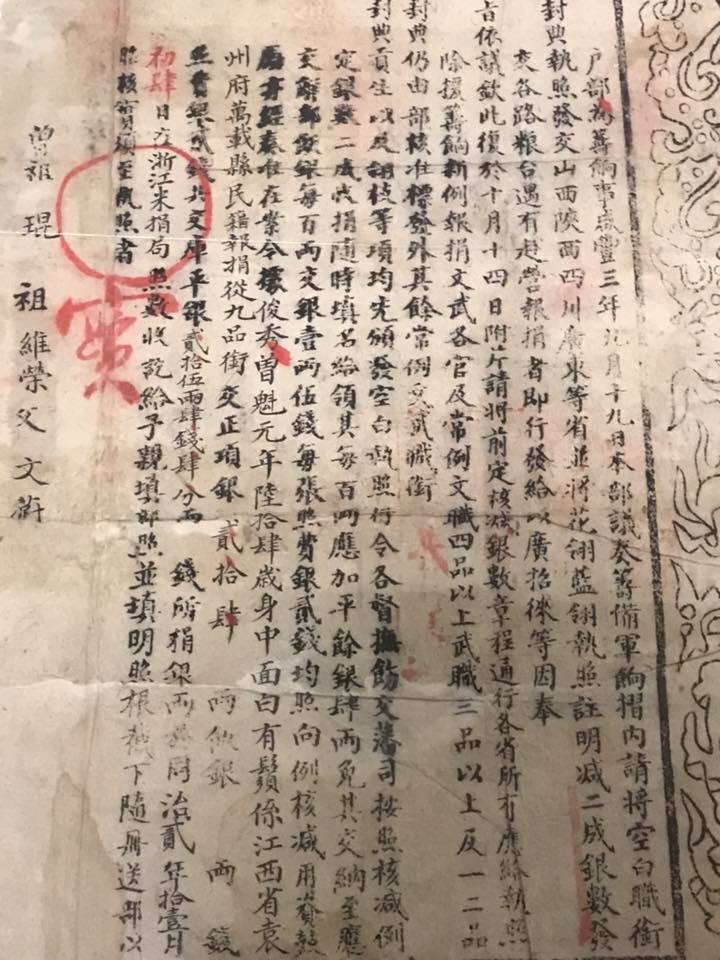 户部為籌餉事咸豐三年九月十九日本部議奏籌備軍餉摺內請將空白職銜
封典執照發交山西陝西四川廣東等省並將花翎藍翎執照註明减二成銀數發
交各路粮台遇有赴營報捐者即行發給以廣招徠等因奉
旨依議欽此復於十月十四日附片請將前定核减銀數章程通行各省所有應給執照
除援籌餉新例報捐文武各官及常例文職四品以上武職三品以上及一二品
封典仍由部核准標發外其餘常例文武職銜
封典貢生以及翎枝等項均先頒發空白執照行令各督撫飭交藩司按照核减例
定銀數二成收捐隨時填名給領其每百兩應加平餘銀肆兩免其交納至應
交解部飯銀每百兩交銀壹兩伍錢每張照費銀貳錢均照向例核减用資
奏准在案今據俊秀曾魁元年陸拾肆歲身中面白有鬚係江西省袁
州府萬載縣民籍報捐從九品銜交正項銀貳拾肆兩飯銀 兩 錢
照費銀貳錢共交庫平銀貳拾伍兩肆錢肆分 錢所捐銀兩於同治貳年拾壹月
初肆日在浙江米捐局照數收訖給予親填部照並填明照根截下隨冊送部以
照核實須至執照者
實
曾祖琨 祖維榮父文蔚